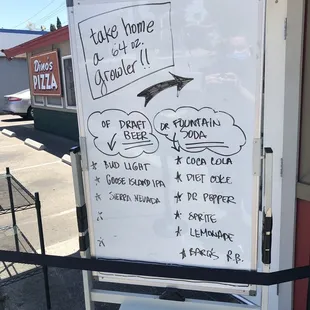 Dinos
PIZZA
take home
a 64 oz.
growler!!
OF DRAFT
BEER
OR FOUNTAIN
SODA
* BUD LIGHT
* GOOSE ISLAND IPA
* SIERRA NEVADA
* COCA COLA
* DIET COKE
* DR PEPPER
* SPRITE
* LEMONADE
* BARQ'S R.B.